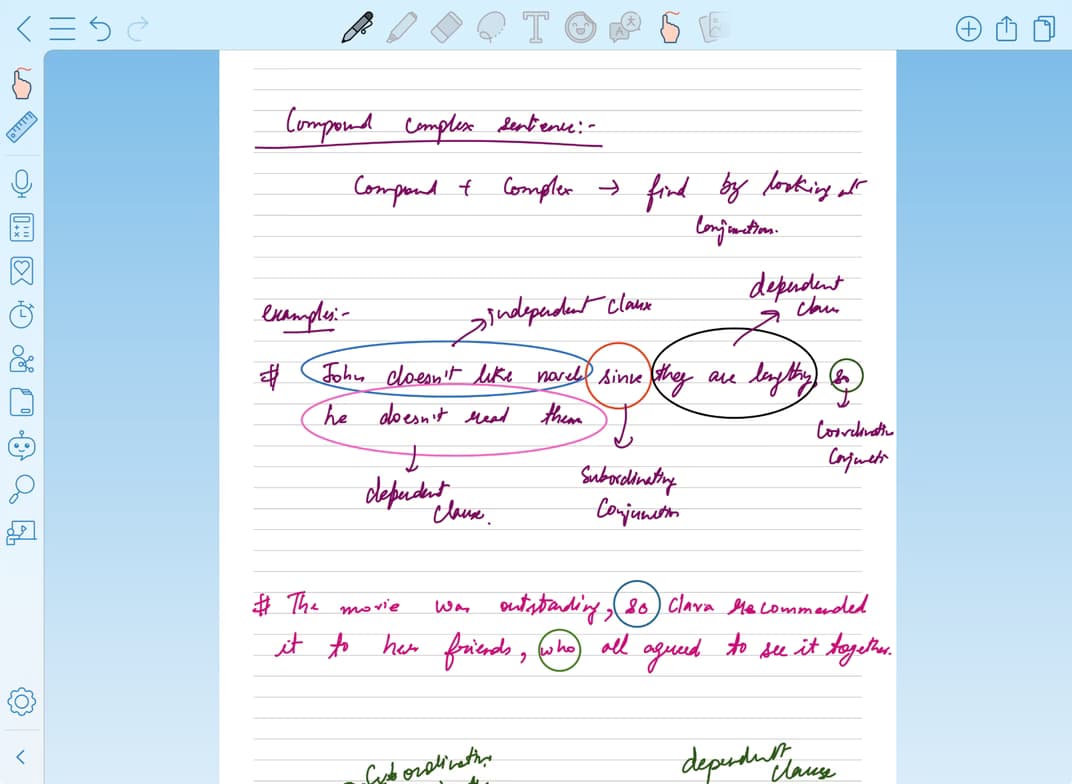 Compound Complex Sentence:-
Compound + Complex → find by looking at
Conjunction.
dependent
clause
independent clause
examples:-
# John doesn't like novel since they are lengthy, so
he doesn't read them
Coordinatin
Conjuncti
Subordinating
Conjunction
dependent
clause.
# The movie was outstanding, so Clara recommended
it to her friends, who all agreed to see it together.
Subordinatin
dependent
clause